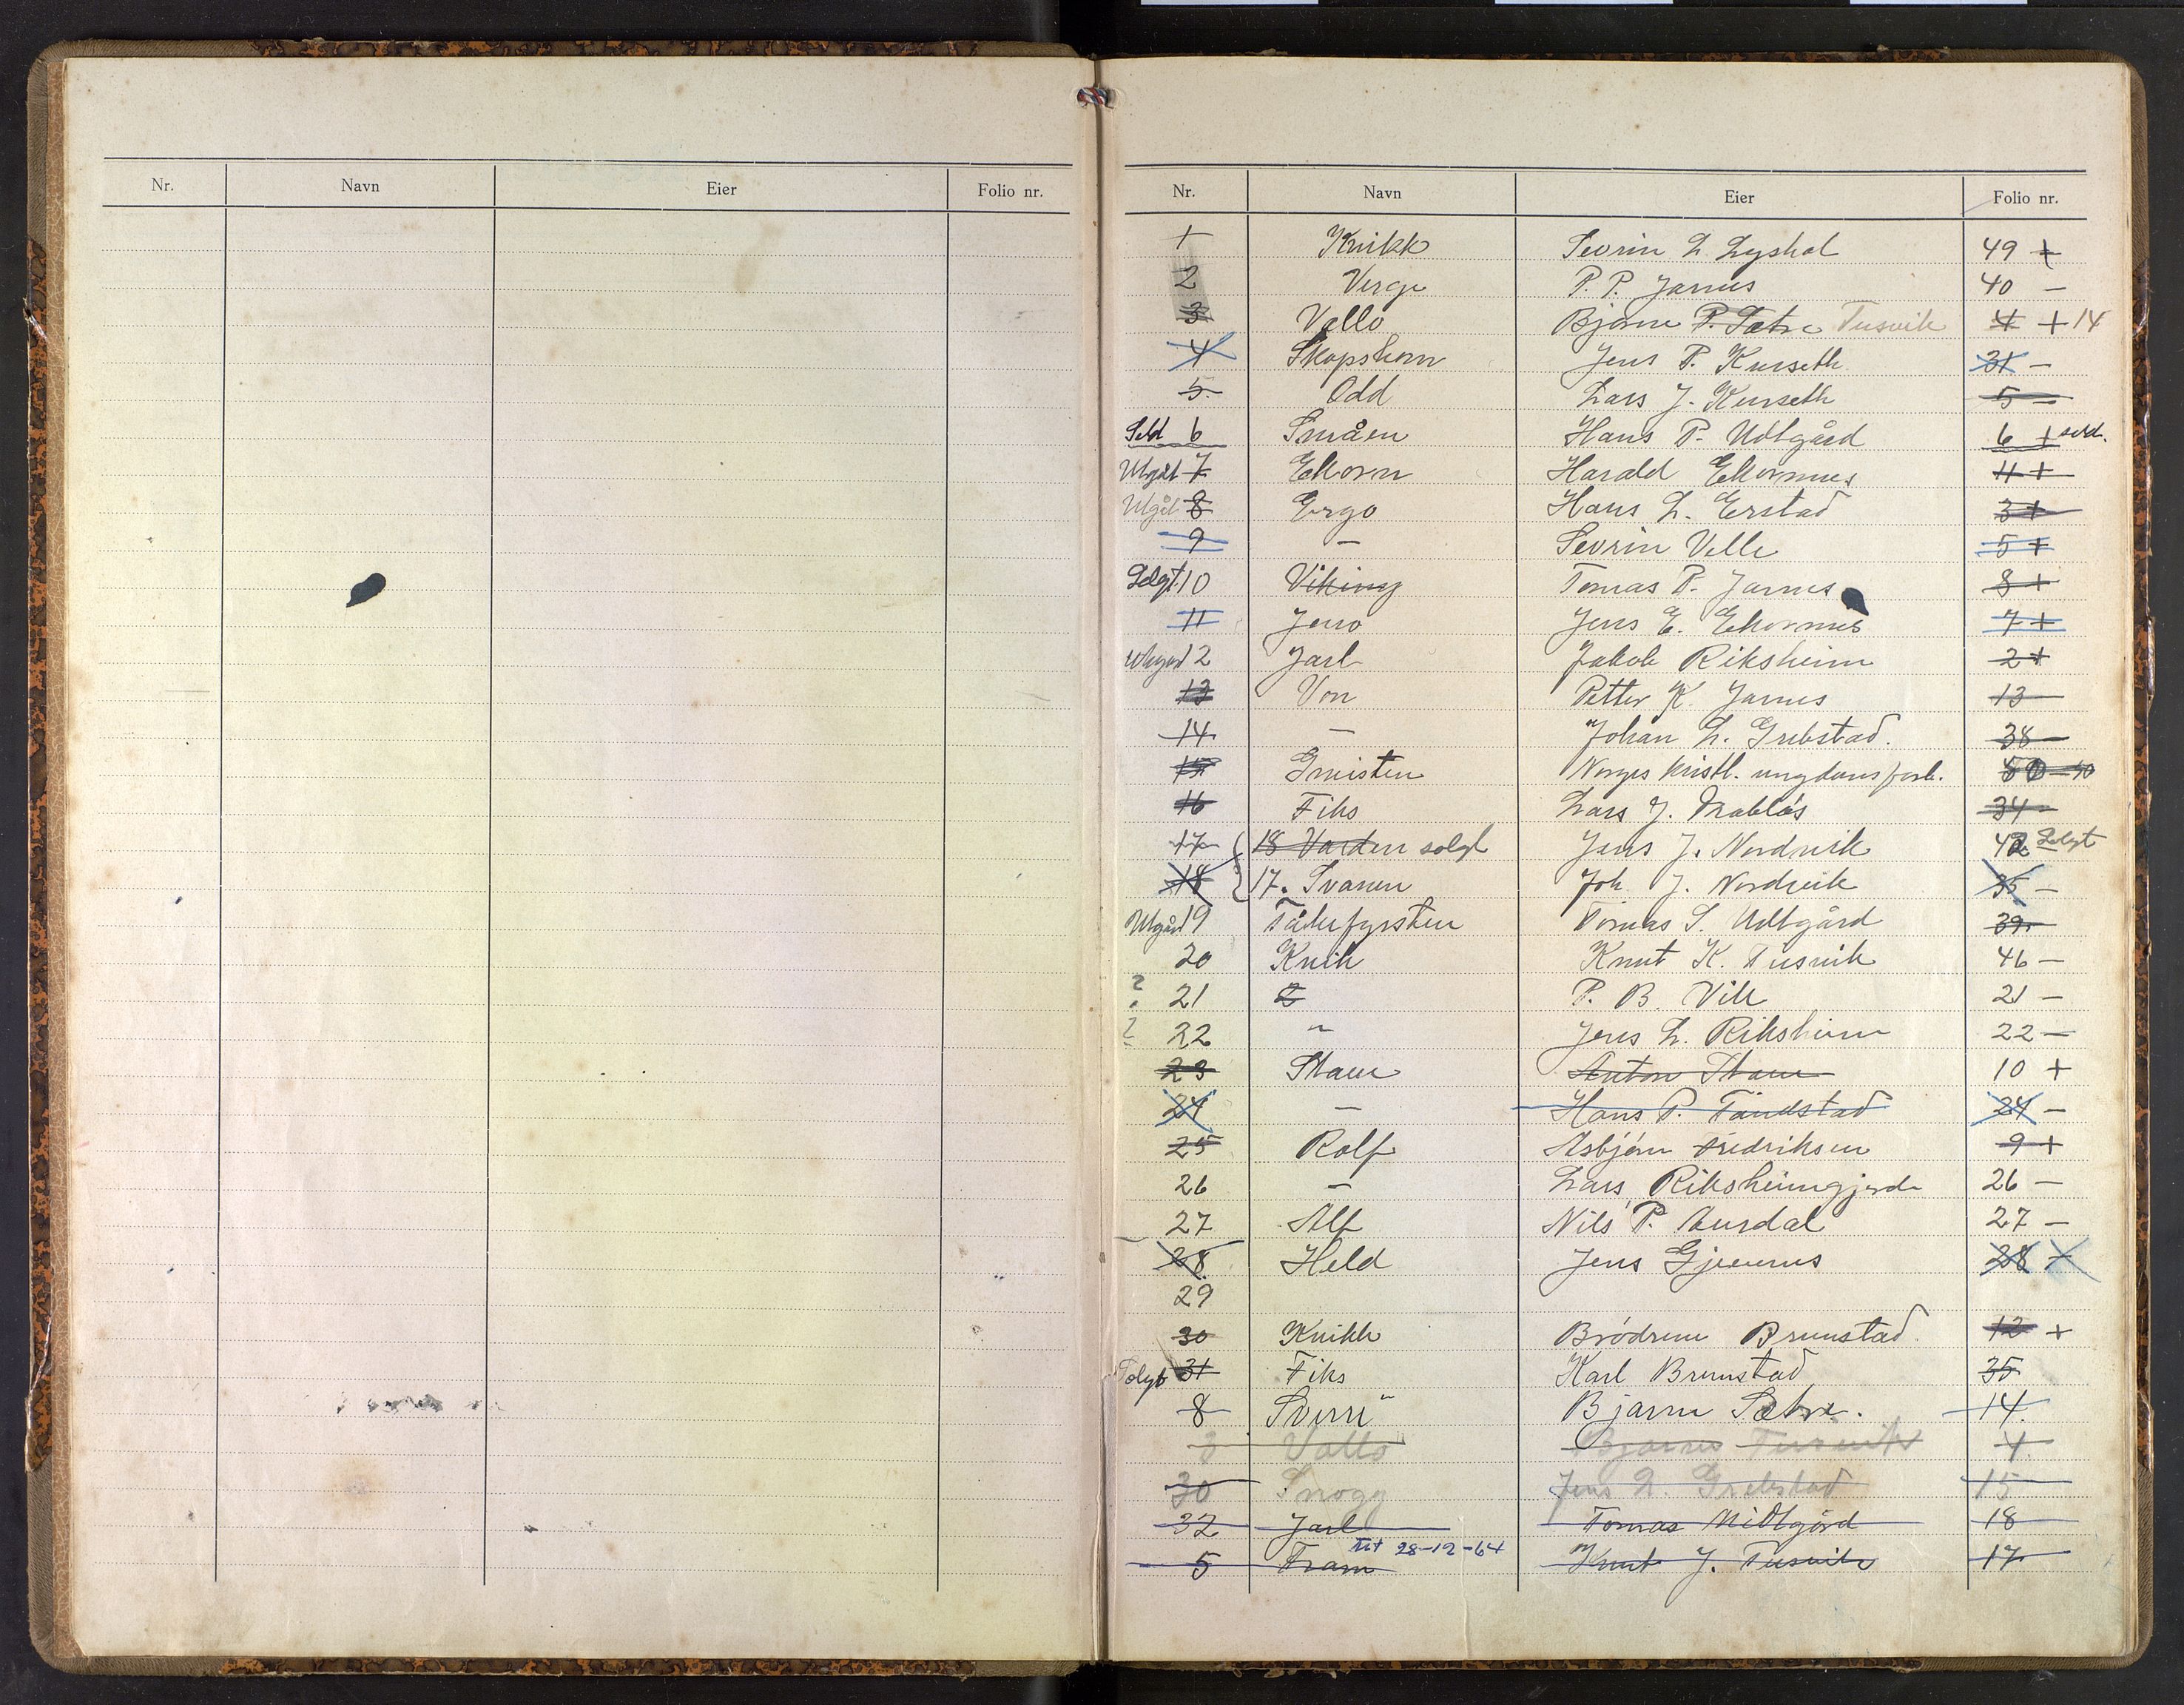 Nr. Navn Eier Folio nr.
Nr. Navn Eier Folio nr.
1 Knikk Sevrin L. Lyshol 49 +
2 Verge P. P. Jarnes 40 —
3 Vallo Bjarne P. Sætre Tusvik 4 + 14
4 Skopshorn Jens P. Kurseth 31 —
5 Odd Lars J. Kurseth 5 —
Seld 6 Småen Hans P. Utgård 6 + seld.
Utgåt 7 Ekorn Harald Ekornnes 11 +
Utgåt 8 Ergo Hans L. Erstad 3 +
9 — Sevrin Velle 5 +
Selgt 10 Viking Tomas P. Jarnes 8 +
11 Jero Jens E. Ekornnes 7 +
12 Jarl Jakob Riksheim 2 +
13 Von Petter K. Jarnes 13 —
14 — Johan L. Grebstad. 38 —
15 Gnisten Norges kristl. ungdomsforb. 50
16 Fiks Lars J. 34 —
17 18 Varden solgt Jens J. Nordvik 42 Selgt
18 17. Svanen Joh. J. Nordvik 35 —
Utgår 19 Tåkefyrsten Tomas S. Utgård 39.
20 Knik Knut K. Tusvik 46 —
? 21 P. B. Vik 21 —
? 22 " Jens L. Riksheim 22 —
23 Skaue Anton Skaue 10 +
24 — Hans P. Tandstad 24 —
25 Rolf Asbjørn Fredriksen 9 +
26 — Lars Riksheimgjerde 26 —
27 Alf Nils P. Aursdal 27 —
28 Held Jens Gjævenes 28
29
30 Knikk Brödrene Brunstad. 12 +
Solgt 31 Fiks Karl Brunstad 35
8 Sverre" Bjarne Sætre. 14.
3 Vallo" Bjarne Tusvik 4.
30 Snøgg Jens L. Grebstad 15
32 Jarl Tomas Midtgård 18
5 Fram 28-12-64 Knut J. Tusvik 17